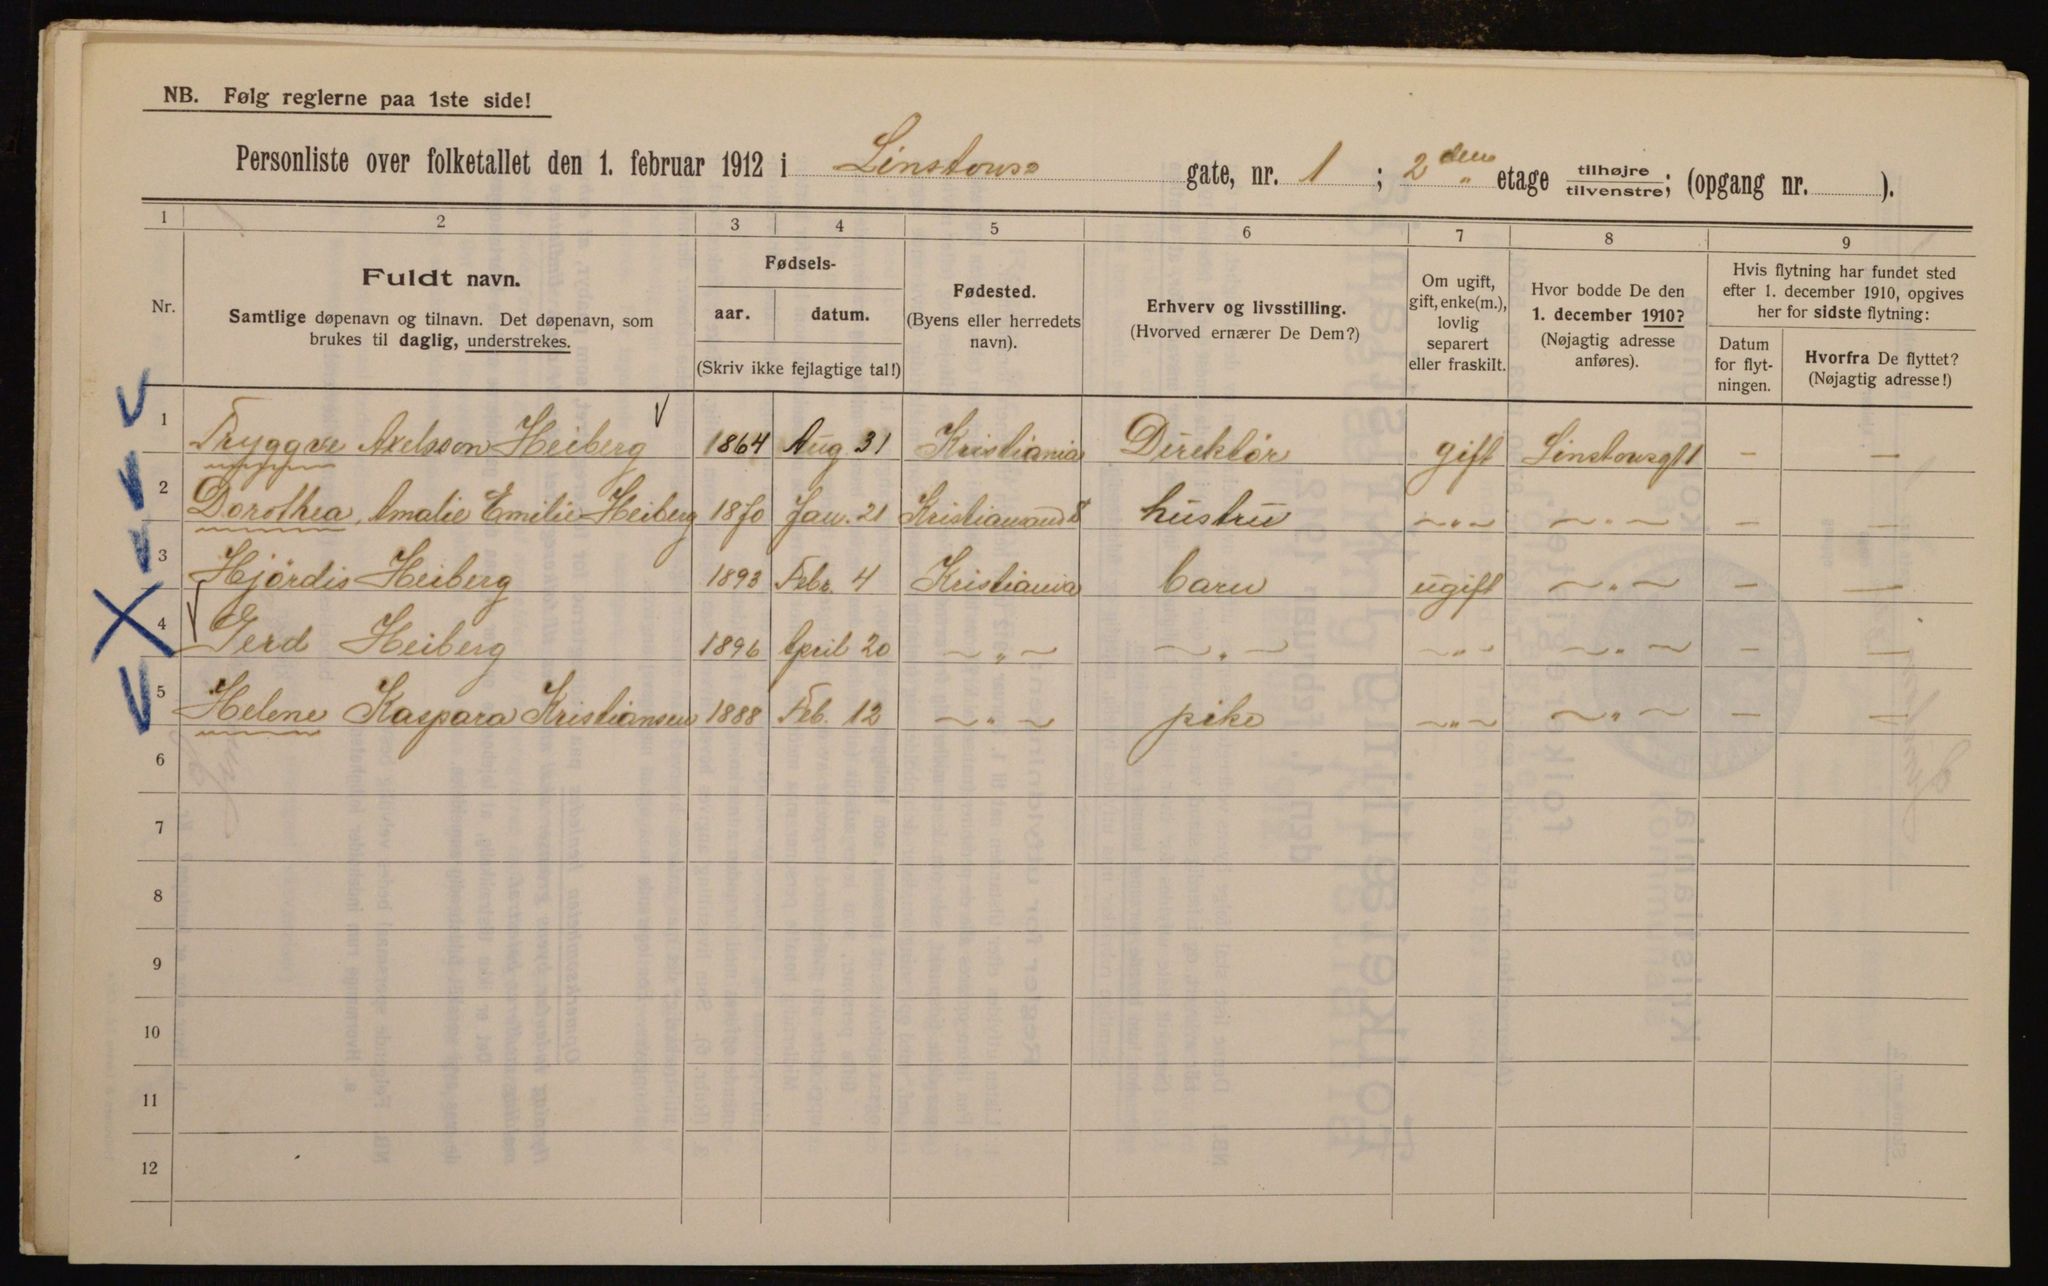 NB. Følg reglerne paa 1ste side!
Personliste over folketallet den 1. februar 1912 i Linstows gate, nr. 1 ; 2den etage tilhøjre tilvenstre; (opgang nr. ).
1 2 3 4 5 6 7 8 9
Nr.
Fuldt navn.
Samtlige døpenavn og tilnavn. Det døpenavn, som
brukes til daglig, understrekes.
Fødsels-
aar. datum.
(Skriv ikke fejlagtige tal!)
Fødested.
(Byens eller herredets
navn).
Erhverv og livsstilling.
(Hvorved ernærer De Dem?)
Om ugift,
gift, enke(m.),
lovlig
separert
eller fraskilt.
Hvor bodde De den
1. december 1910?
(Nøjagtig adresse
anføres).
Hvis flytning har fundet sted
efter 1. december 1910, opgives
her for sidste flytning:
Datum
for flyt-
ningen.
Hvorfra De flyttet?
(Nøjagtig adresse!)
1 Tryggve Axelsson Heiberg 1864 Aug 31 Kristiania Direktør gift Linstowsgt 1 — —
2 Dorothea Amalie Emilie Heiberg 1870 Jan. 21 Kristiansand S hustru ~„~ ~„~ — —
3 Hjördis Heiberg 1893 Febr. 4 Kristiania barn ugift ~„~ — —
4 Gerd Heiberg 1896 April 20 ~„~ ~„~ ~„~ ~„~ — —
5 Helene Kaspara Kristiansen 1888 Feb. 12 ~„~ pike ~„~ ~„~ — —
6
7
8
9
10
11
12